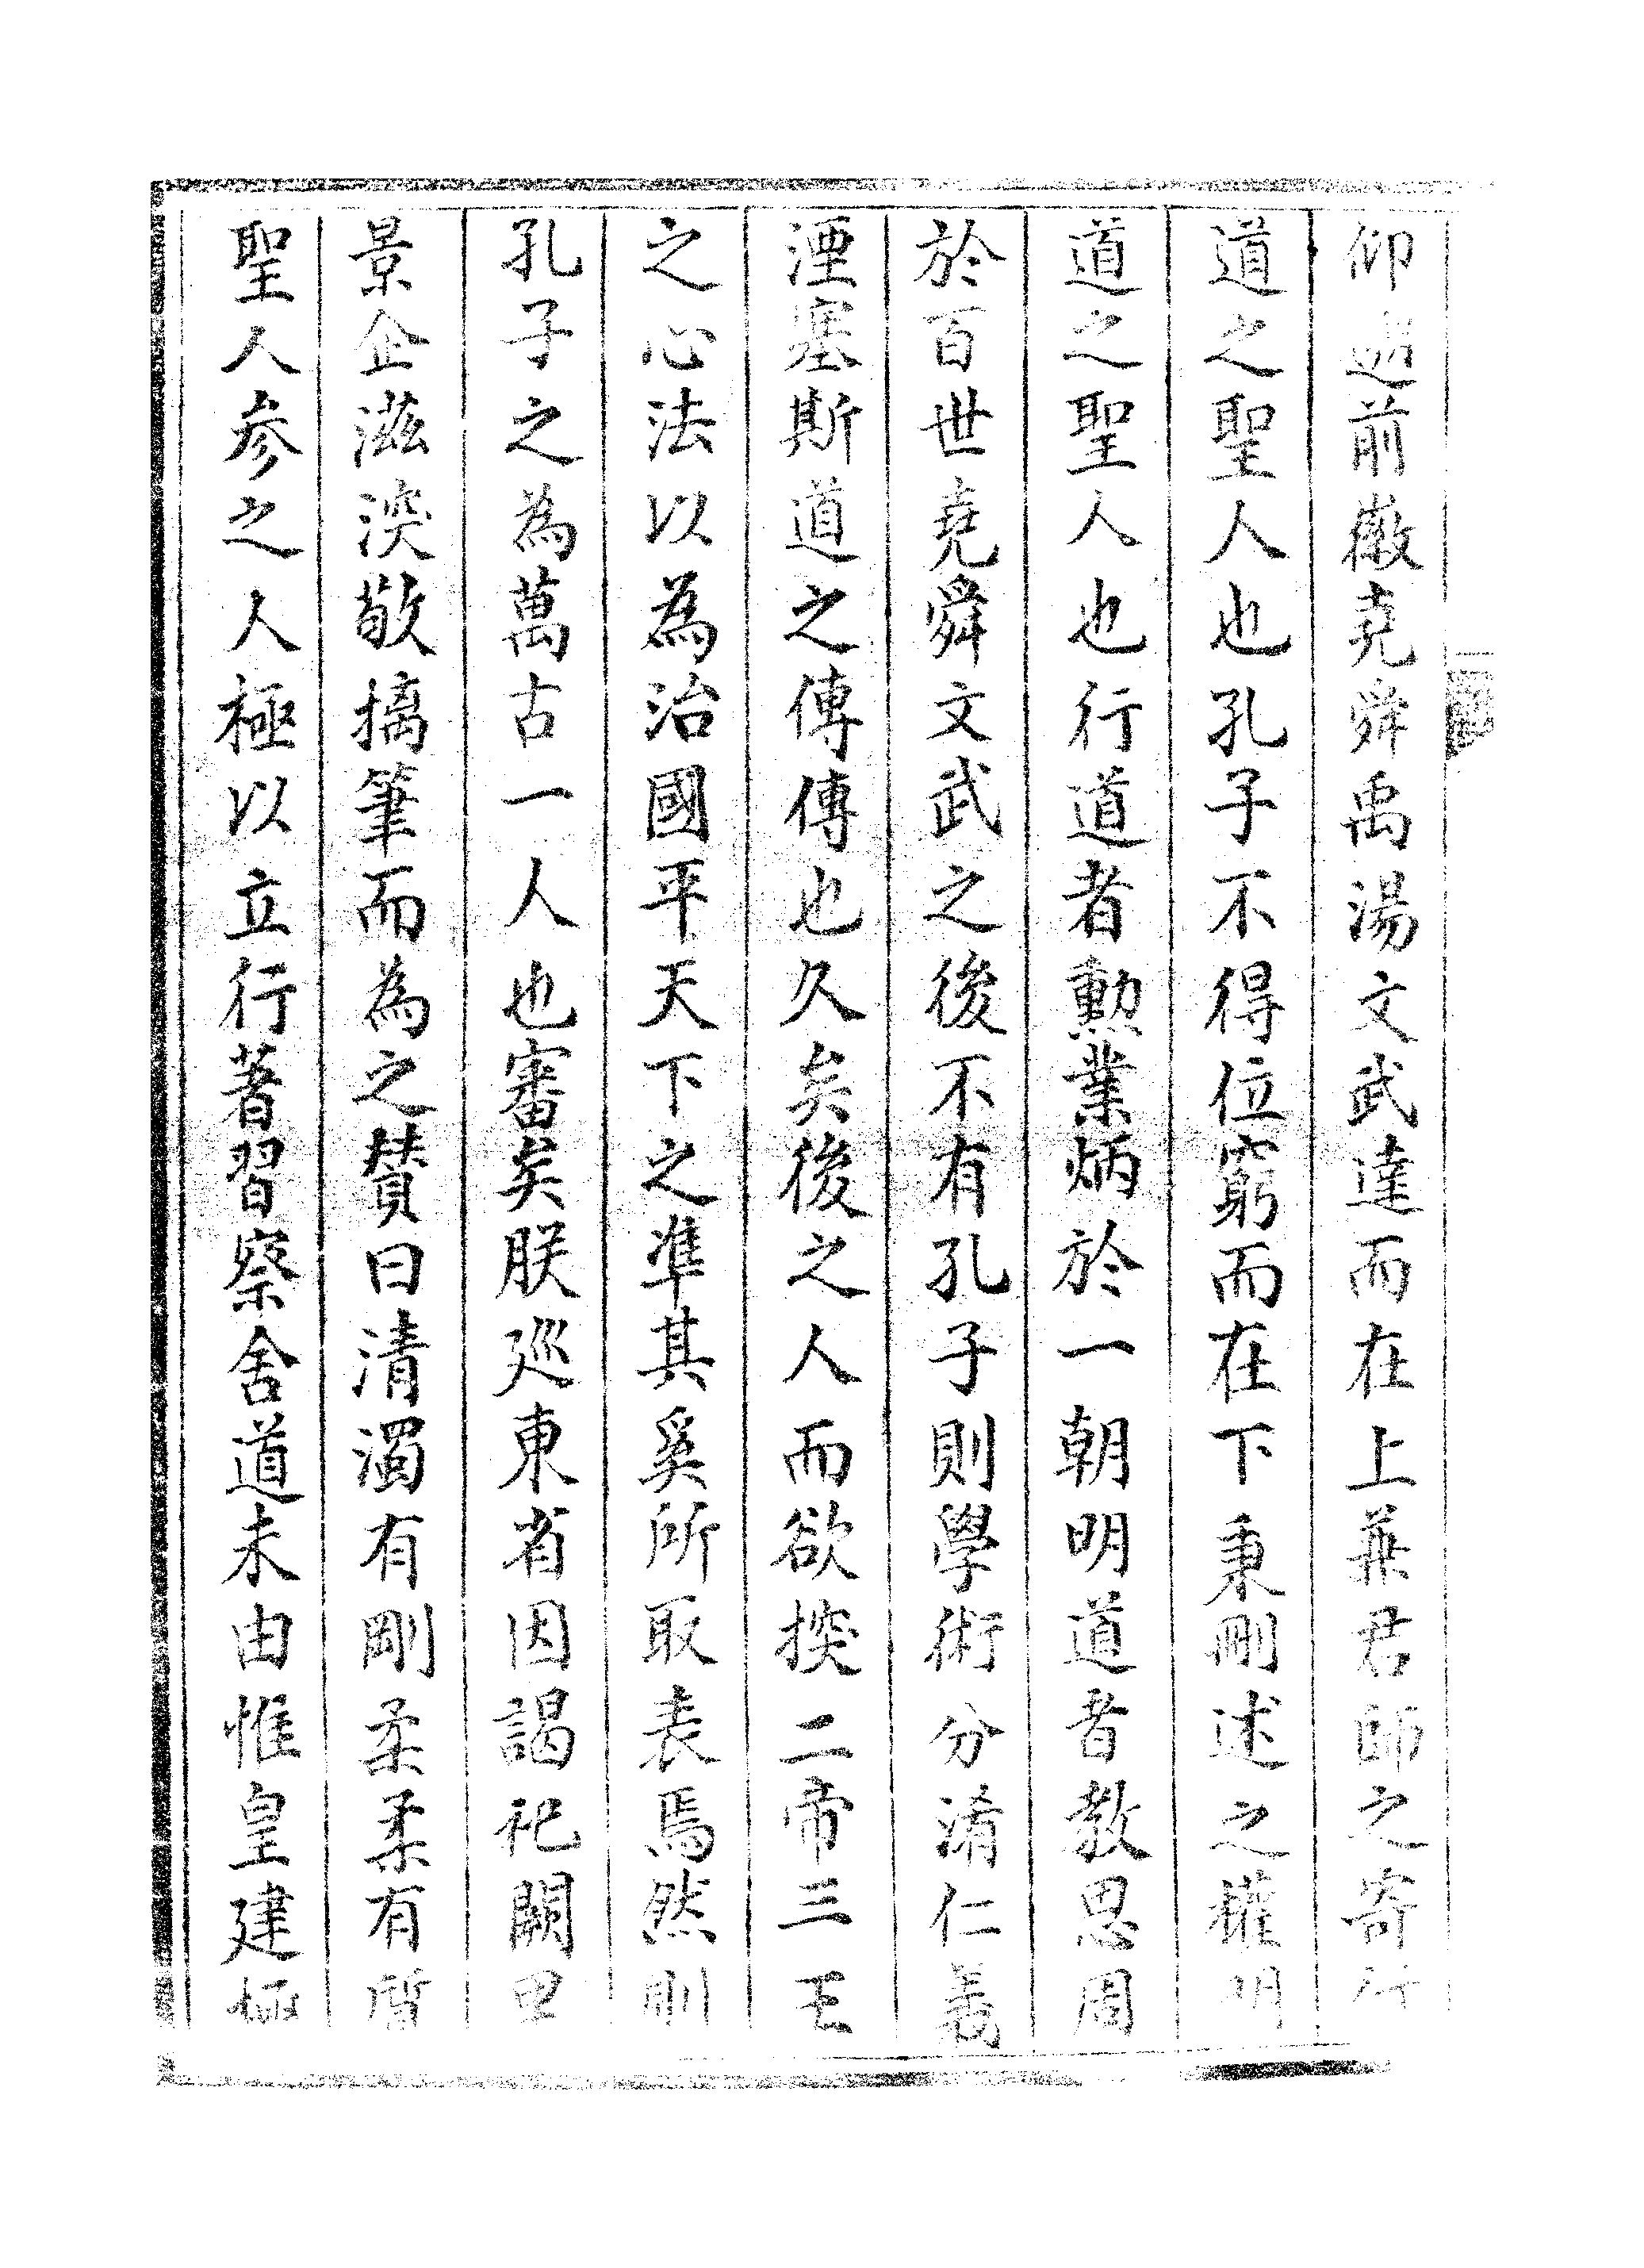 仰迢前徽堯舜禹湯文武達而在上兼君師之寄行
道之聖人也孔子不得位窮而在下秉刪述之權明
道之聖人也行道者勲業炳於一朝明道者教思周
於百世堯舜文武之後不有孔子則學術分淆仁義
湮塞斯道之傳傳也久矣後之人而欲探二帝三王
之心法以為治國平天下之準其奚所取表焉然則
孔子之為萬古一人也審矣朕廵東省因謁祀闕里
景企滋深敬摛筆而為之賛曰清濁有剛柔柔有質
聖人參之人極以立行著習察舍道未由惟皇建極